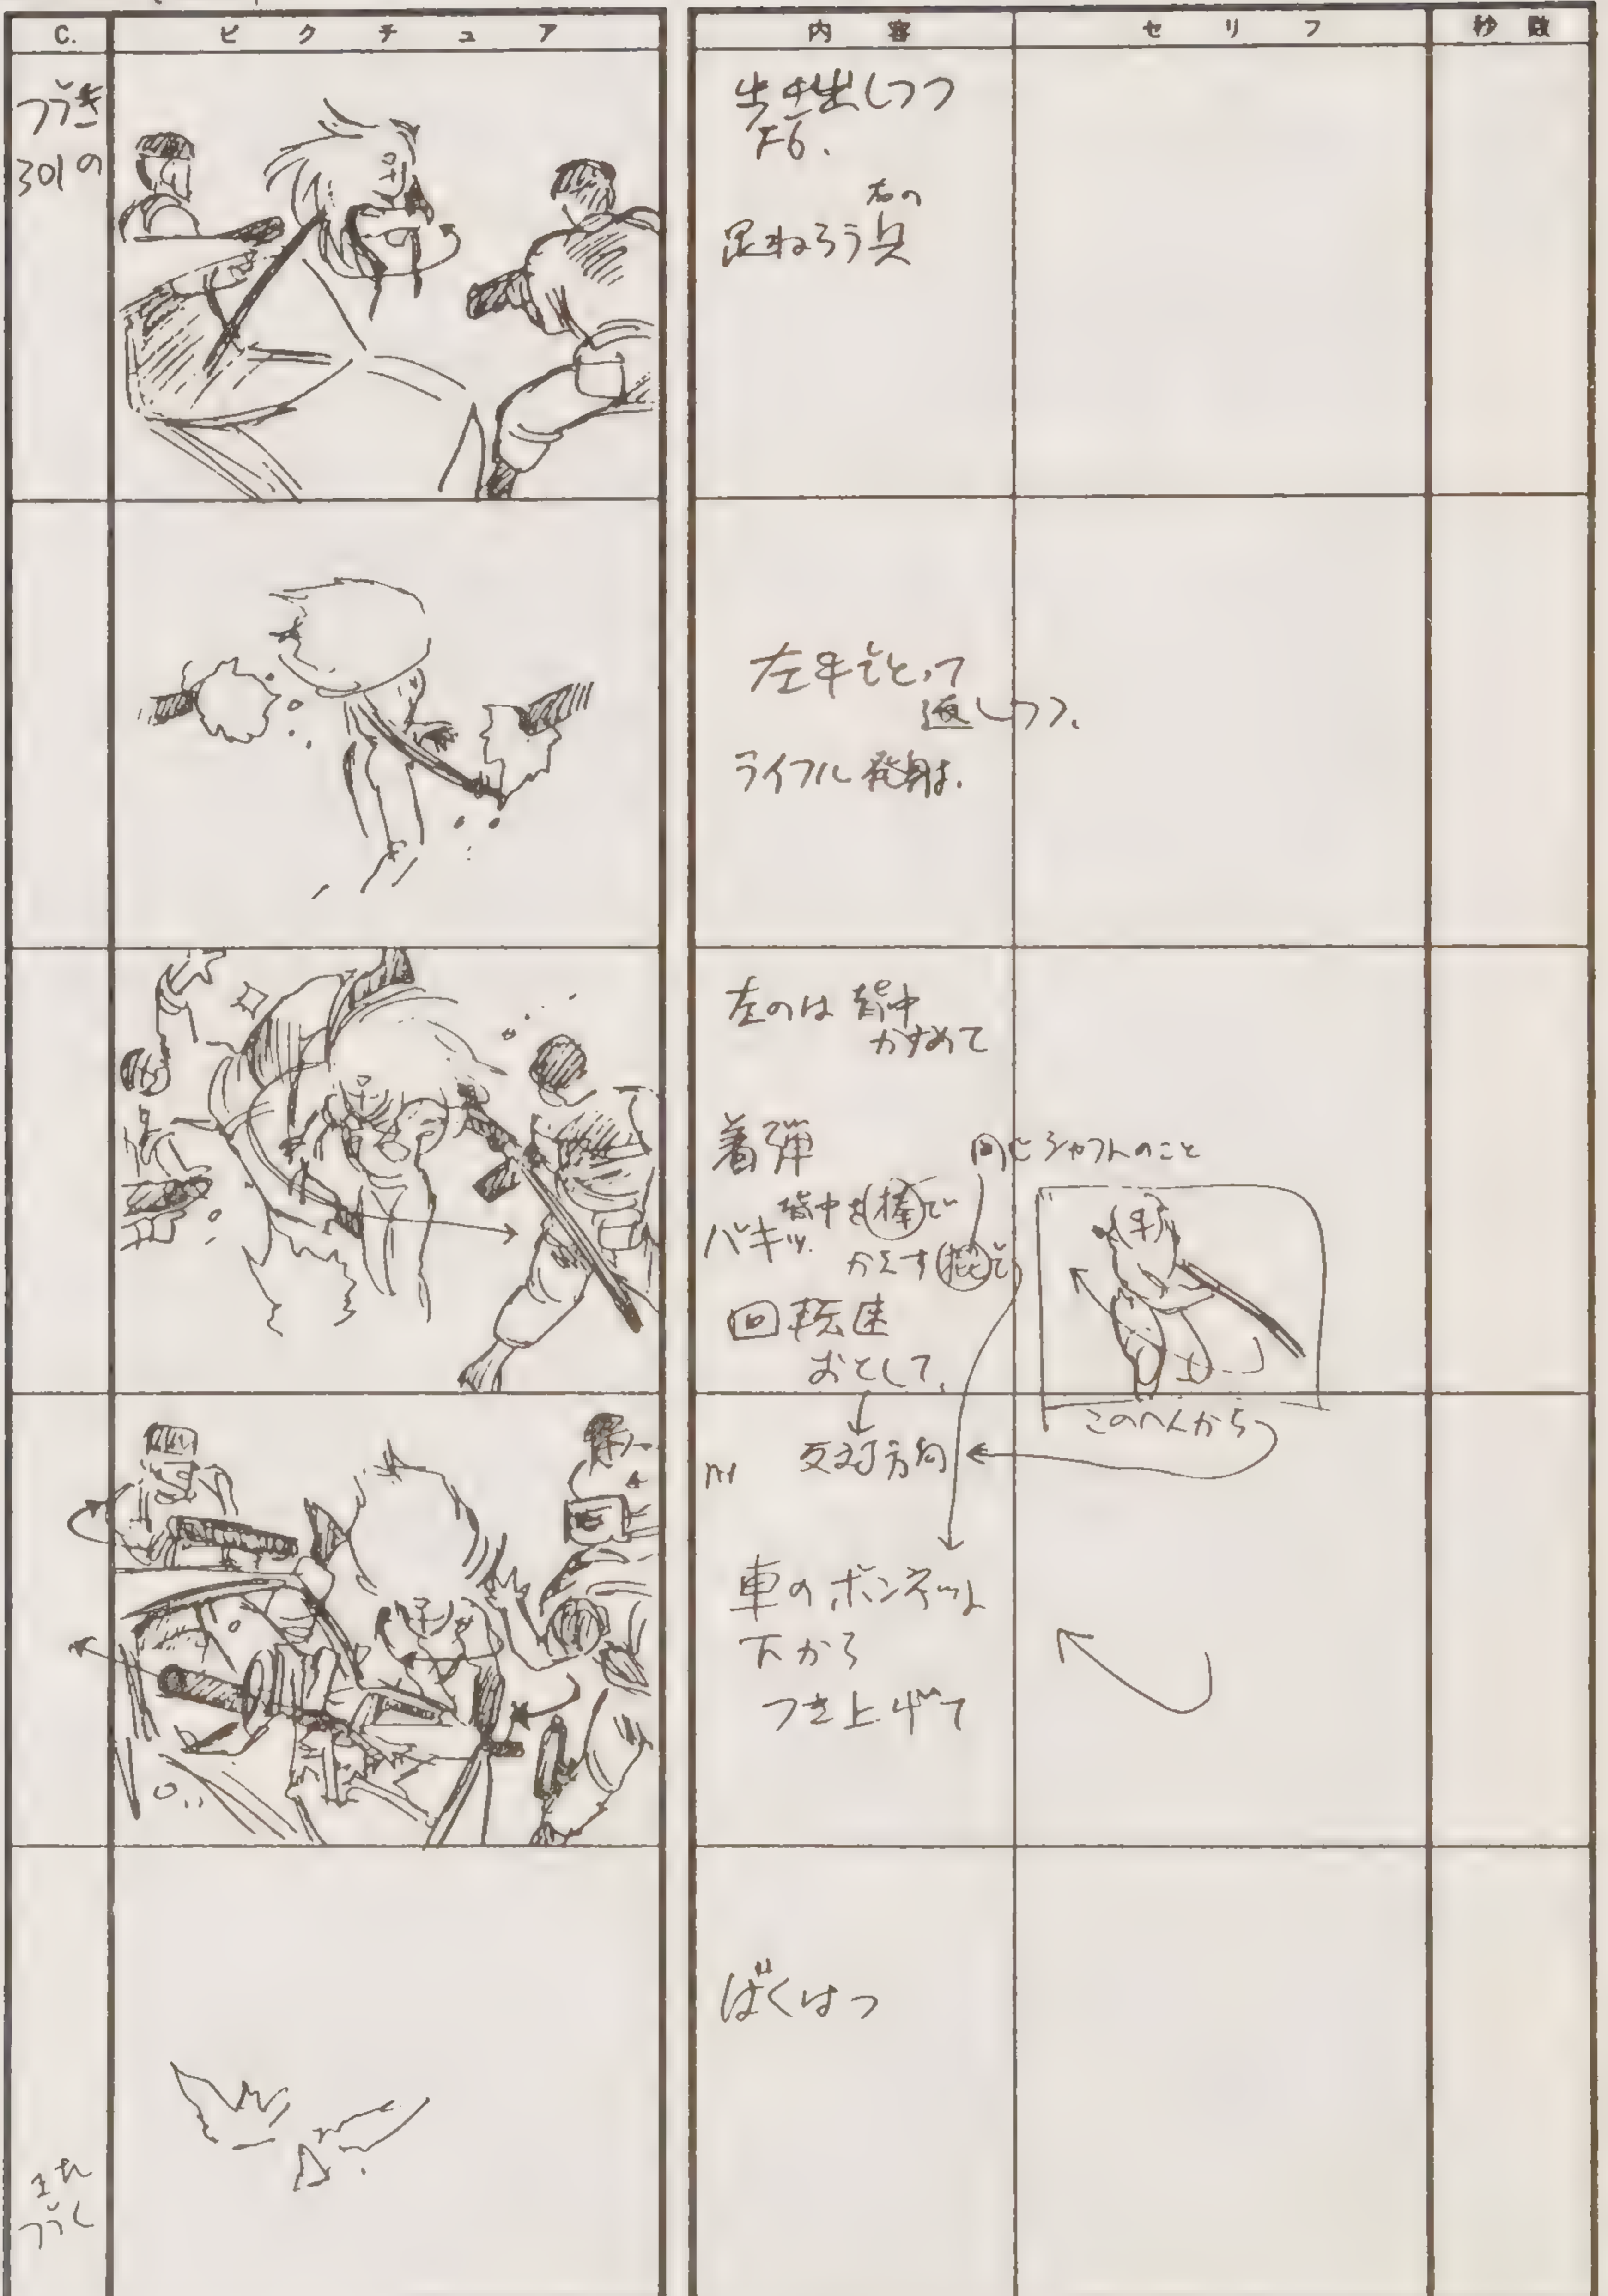 C.
ピクチュア
内容
セリフ
秒数
つづき
301の
しつつ
右の
足ねらう兵
左手でとって
返しつつ、
ライフル発射。
左のは 背中
かすめて
着弾
同じシャフトのこと
背中を棒で
バキッ
かえす
回転速
おとして、
このへんから
反対方向
車のボンネット
下から
つき上げて
ばくはつ
また
つづく